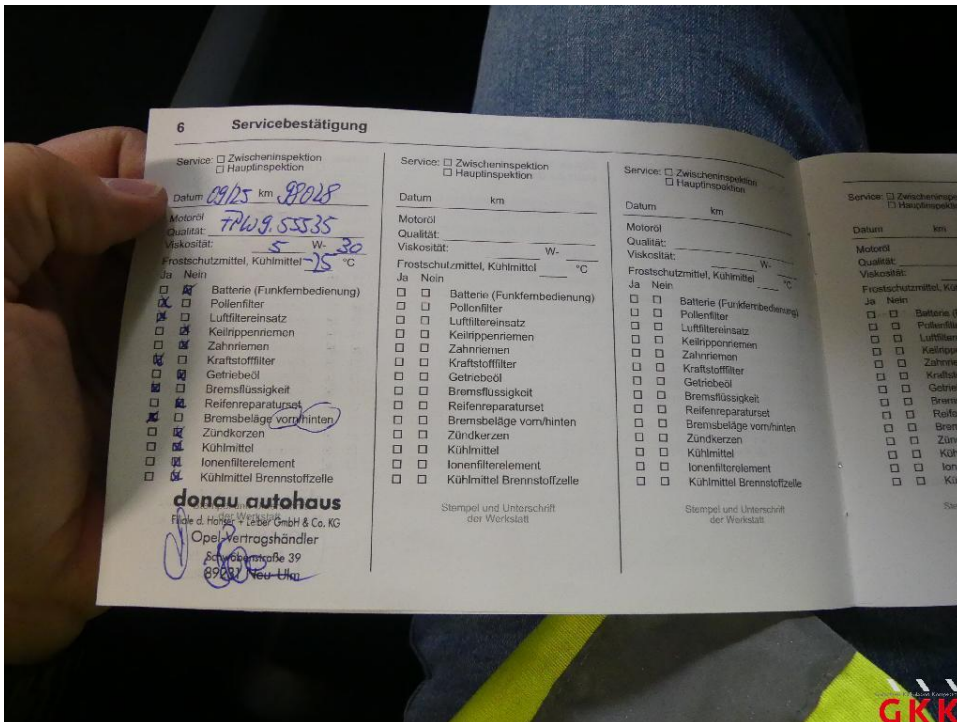 6 Servicebestätigung
Service: ☐ Zwischeninspektion
☐ Hauptinspektion
Datum 09/25 km 98028
Motoröl
Qualität: 9.55535
Viskosität: 5 W- 30
Frostschutzmittel, Kühlmittel -25 °C
Ja Nein
☐ ☒ Batterie (Funkfernbedienung)
☒ ☐ Pollenfilter
☒ ☐ Luftfiltereinsatz
☐ ☒ Keilrippenriemen
☐ ☒ Zahnriemen
☒ ☐ Kraftstofffilter
☐ ☒ Getriebeöl
☒ ☐ Bremsflüssigkeit
☐ ☒ Reifenreparaturset
☒ ☐ Bremsbeläge vorn/hinten
☐ ☒ Zündkerzen
☐ ☒ Kühlmittel
☐ ☒ Ionenfilterelement
☐ ☒ Kühlmittel Brennstoffzelle
donau autohaus
Stempel und Unterschrift
der Werkstatt
Filiale d. Leiber GmbH & Co. KG
Opel-Vertragshändler
Schwabenstraße 39
89231 Neu-Ulm
Service: ☐ Zwischeninspektion
☐ Hauptinspektion
Datum km
Motoröl
Qualität:
Viskosität: W-
Frostschutzmittel, Kühlmittel °C
Ja Nein
☐ ☐ Batterie (Funkfernbedienung)
☐ ☐ Pollenfilter
☐ ☐ Luftfiltereinsatz
☐ ☐ Keilrippenriemen
☐ ☐ Zahnriemen
☐ ☐ Kraftstofffilter
☐ ☐ Getriebeöl
☐ ☐ Bremsflüssigkeit
☐ ☐ Reifenreparaturset
☐ ☐ Bremsbeläge vorn/hinten
☐ ☐ Zündkerzen
☐ ☐ Kühlmittel
☐ ☐ Ionenfilterelement
☐ ☐ Kühlmittel Brennstoffzelle
Stempel und Unterschrift
der Werkstatt
Service: ☐ Zwischeninspektion
☐ Hauptinspektion
Datum km
Motoröl
Qualität:
Viskosität: W-
Frostschutzmittel, Kühlmittel °C
Ja Nein
☐ ☐ Batterie (Funkfernbedienung)
☐ ☐ Pollenfilter
☐ ☐ Luftfiltereinsatz
☐ ☐ Keilrippenriemen
☐ ☐ Zahnriemen
☐ ☐ Kraftstofffilter
☐ ☐ Getriebeöl
☐ ☐ Bremsflüssigkeit
☐ ☐ Reifenreparaturset
☐ ☐ Bremsbeläge vorn/hinten
☐ ☐ Zündkerzen
☐ ☐ Kühlmittel
☐ ☐ Ionenfilterelement
☐ ☐ Kühlmittel Brennstoffzelle
Stempel und Unterschrift
der Werkstatt
Service: ☐ Zwischeninspe
☐ Hauptinspekti
Datum km
Motoröl
Qualität:
Viskosität:
Frostschutzmittel, Kü
Ja Nein
☐ ☐ Batterie (F
☐ ☐ Pollenfilt
☐ ☐ Luftfilter
☐ ☐ Keilripp
☐ ☐ Zahnrie
☐ ☐ Kraftst
☐ ☐ Getrie
☐ ☐ Brem
☐ ☐ Reife
☐ ☐ Brem
☐ ☐ Zün
☐ ☐ Küh
☐ ☐ Ion
☐ ☐ Kü
GKK